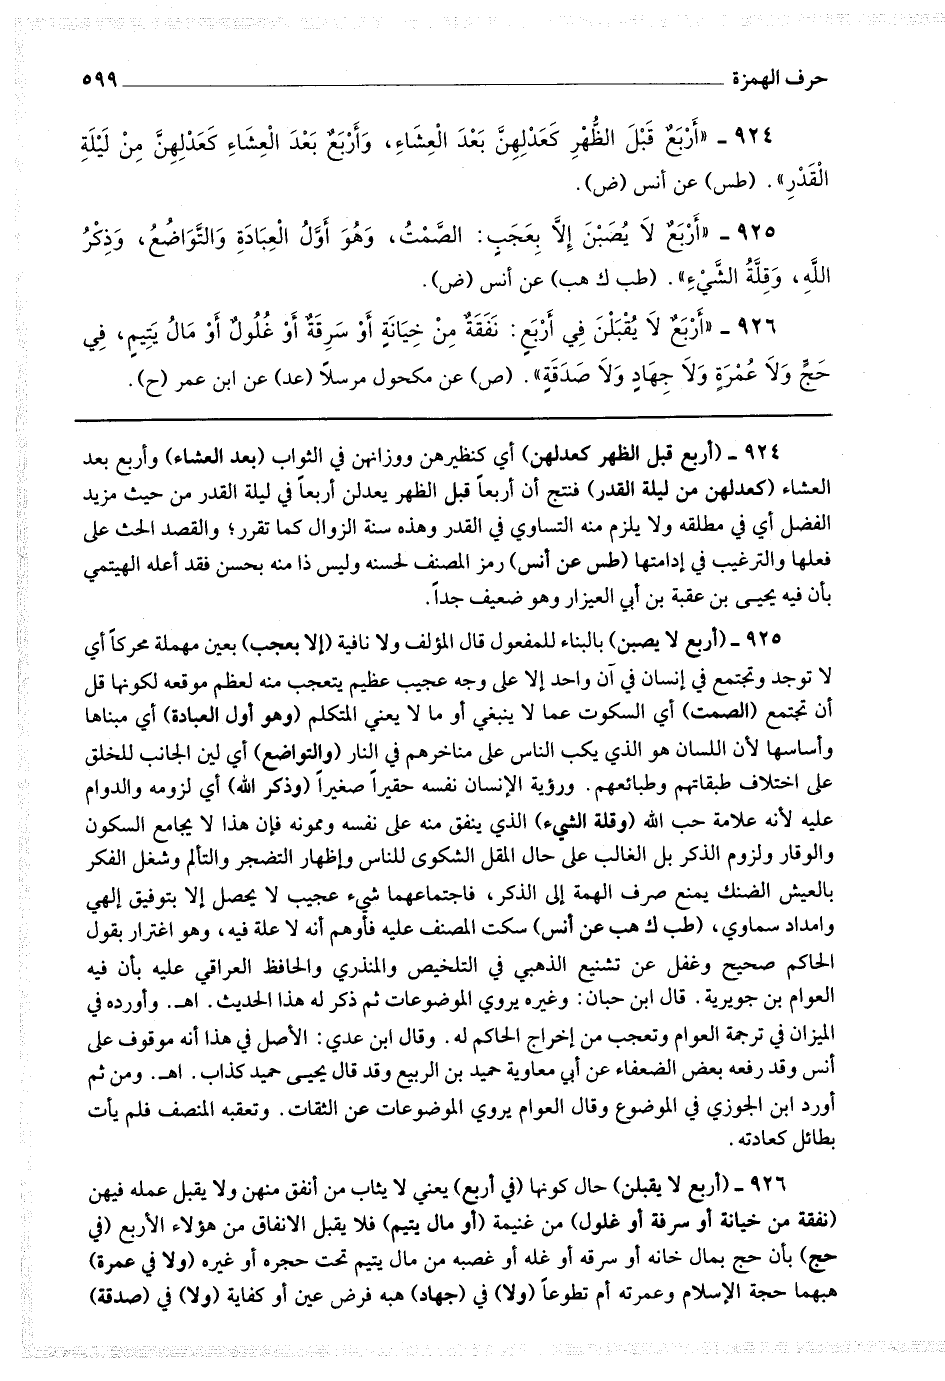 حرف الهمزة ٥٩٩
٩٢٤ ـ «أَرْبَعٌ قَبْلَ الظُّهْرِ كَعَدْلِهِنَّ بَعْدَ الْعِشَاءِ، وَأَرْبَعٌ بَعْدَ الْعِشَاءِ كَعَدْلِهِنَّ مِنْ لَيْلَةِ
الْقَدْرِ». (طس) عن أنس (ض).
٩٢٥ ـ «أَرْبَعٌ لَا يُصَبْنَ إِلَّا بِعَجَبٍ: الصَّمْتُ، وَهُوَ أَوَّلُ الْعِبَادَةِ وَالتَّوَاضُعُ، وَذِكْرُ
اللَّهِ، وَقِلَّةُ الشَّيْءِ». (طب ك هب) عن أنس (ض).
٩٢٦ ـ «أَرْبَعٌ لَا يُقْبَلْنَ فِي أَرْبَعٍ: نَفَقَةٌ مِنْ خِيَانَةٍ أَوْ سَرِقَةٌ أَوْ غُلُولٌ أَوْ مَالُ يَتِيمٍ، فِي
حَجٍّ وَلَا عُمْرَةٍ وَلَا جِهَادٍ وَلَا صَدَقَةٍ». (ص) عن مكحول مرسلاً (عد) عن ابن عمر (ح).
٩٢٤ ـ (أربع قبل الظهر كعدلهن) أي كنظيرهن ووزانهن في الثواب (بعد العشاء) وأربع بعد
العشاء (كعدلهن من ليلة القدر) فنتج أن أربعاً قبل الظهر يعدلن أربعاً في ليلة القدر من حيث مزيد
الفضل أي في مطلقه ولا يلزم منه التساوي في القدر وهذه سنة الزوال كما تقرر؛ والقصد الحث على
فعلها والترغيب في إدامتها (طس عن أنس) رمز المصنف لحسنه وليس ذا منه بحسن فقد أعله الهيتمي
بأن فيه يحيـى بن عقبة بن أبي العيزار وهو ضعيف جداً.
٩٢٥ ـ (أربع لا يصبن) بالبناء للمفعول قال المؤلف ولا نافية (إلا بعجب) بعين مهملة محركاً أي
لا توجد وتجتمع في إنسان في آن واحد إلا على وجه عجيب عظيم يتعجب منه لعظم موقعه لكونها قل
أن تجتمع (الصمت) أي السكوت عما لا ينبغي أو ما لا يعني المتكلم (وهو أول العبادة) أي مبناها
وأساسها لأن اللسان هو الذي يكب الناس على مناخرهم في النار (والتواضع) أي لين الجانب للخلق
على اختلاف طبقاتهم وطبائعهم. ورؤية الإنسان نفسه حقيراً صغيراً (وذكر الله) أي لزومه والدوام
عليه لأنه علامة حب الله (وقلة الشيء) الذي ينفق منه على نفسه وممونه فإن هذا لا يجامع السكون
والوقار ولزوم الذكر بل الغالب على حال المقل الشكوى للناس وإظهار التضجر والتألم وشغل الفكر
بالعيش الضنك يمنع صرف الهمة إلى الذكر، فاجتماعهما شيء عجيب لا يحصل إلا بتوفيق إلهي
وامداد سماوي، (طب ك هب عن أنس) سكت المصنف عليه فأوهم أنه لا علة فيه، وهو اغترار بقول
الحاكم صحيح وغفل عن تشنيع الذهبي في التلخيص والمنذري والحافظ العراقي عليه بأن فيه
العوام بن جويرية. قال ابن حبان: وغيره يروي الموضوعات ثم ذكر له هذا الحديث. اهـ. وأورده في
الميزان في ترجمة العوام وتعجب من إخراج الحاكم له. وقال ابن عدي: الأصل في هذا أنه موقوف على
أنس وقد رفعه بعض الضعفاء عن أبي معاوية حميد بن الربيع وقد قال يحيـى حميد كذاب. اهـ. ومن ثم
أورد ابن الجوزي في الموضوع وقال العوام يروي الموضوعات عن الثقات. وتعقبه المنصف فلم يأت
بطائل كعادته.
٩٢٦ ـ (أربع لا يقبلن) حال كونها (في أربع) يعني لا يثاب من أنفق منهن ولا يقبل عمله فيهن
(نفقة من خيانة أو سرقة أو غلول) من غنيمة (أو مال يتيم) فلا يقبل الانفاق من هؤلاء الأربع (في
حج) بأن حج بمال خانه أو سرقه أو غله أو غصبه من مال يتيم تحت حجره أو غيره (ولا في عمرة)
هبهما حجة الإسلام وعمرته أم تطوعاً (ولا) في (جهاد) هبه فرض عين أو كفاية (ولا) في (صدقة)